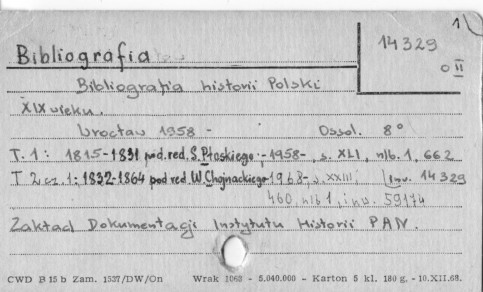 1)
14329
Bibliografia
O II
Bibliografia historii Polski
XIX wieku.
Wrocław 1958 - Ossol. 8°
T. 1: 1815-1831 pod. red. S. Płoskiego - 1958 -, s. XLI, nlb. 1, 662
T 2 cz. 1: 1832-1864 pod red. W. Chojnackiego - 1968 - s. XXIII, Inw. 14329
460, nlb 1, inw. 59174
Zakład Dokumentacji Instytutu Historii PAN.
CWD B 15 b Zam. 1537/DW/On Wrak 1063 - 5.040.000 - Karton 5 kl. 180 g. - 10.XII.68.